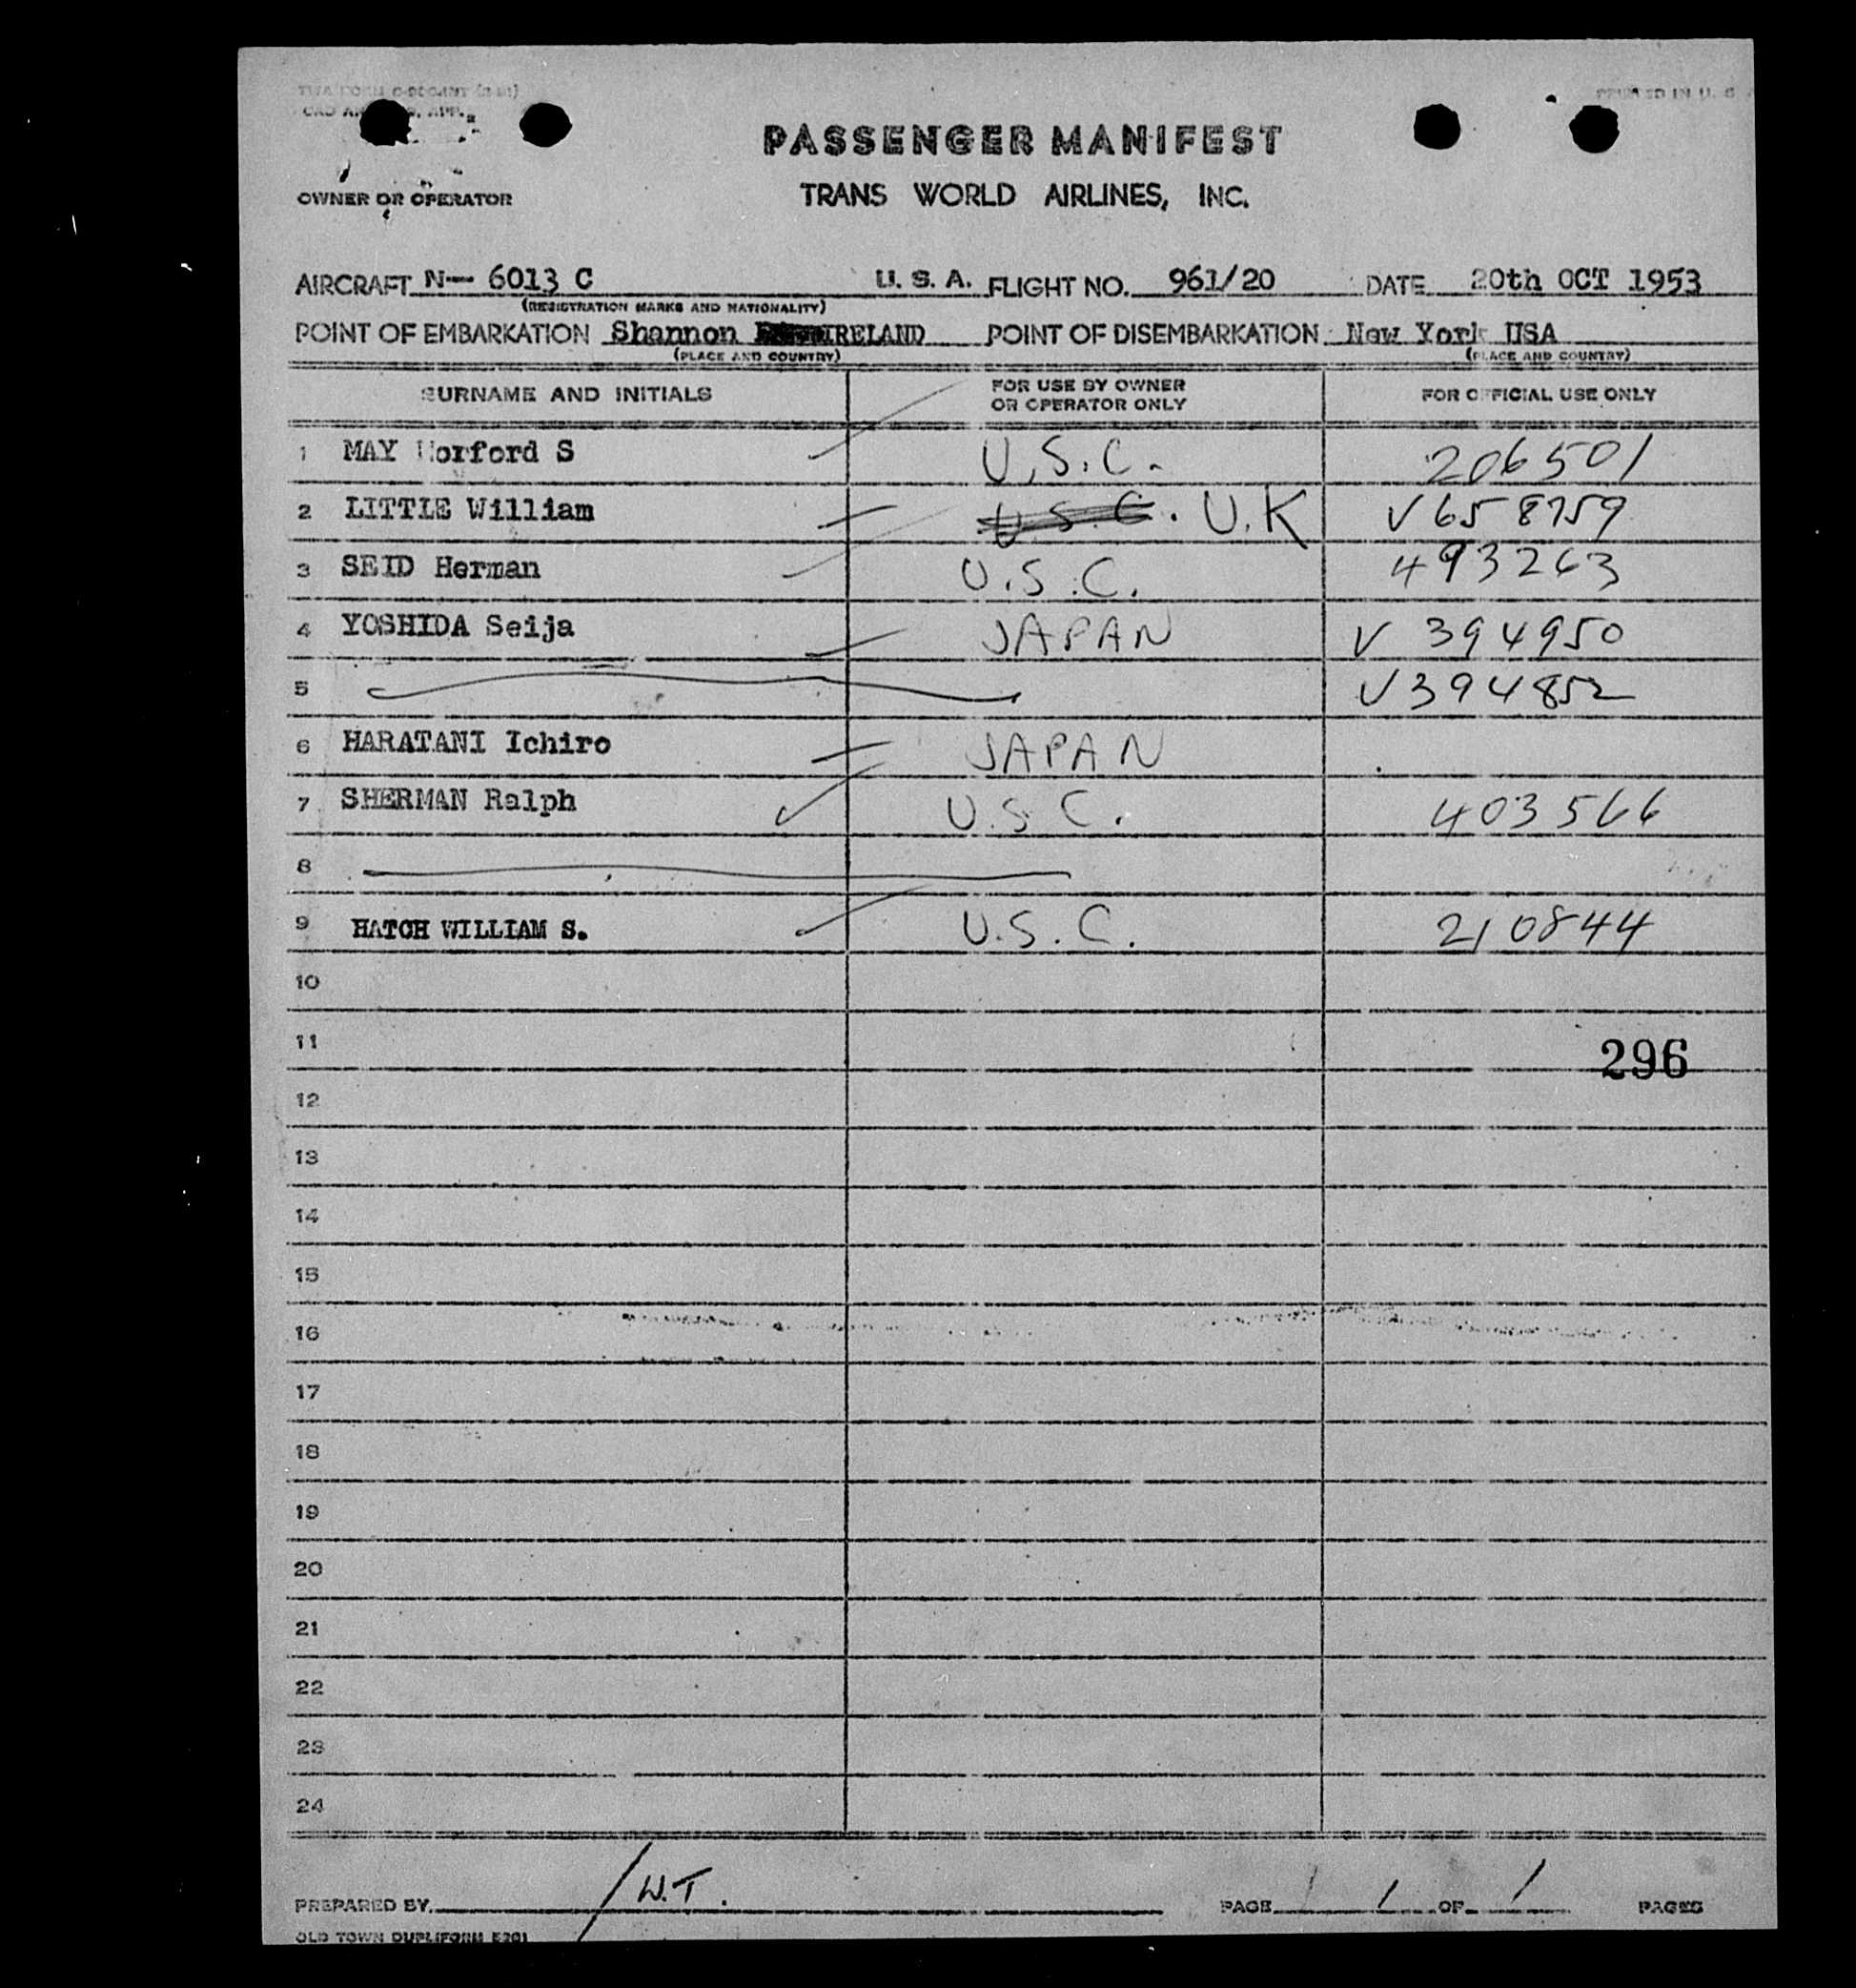 PRINTED IN U. S
PASSENGER MANIFEST
TRANS WORLD AIRLINES, INC.
OWNER OR OPERATOR
AIRCRAFT N— 6013 C U. S. A. FLIGHT NO. 961/20 DATE 20th OCT 1953
(REGISTRATION MARKS AND NATIONALITY)
POINT OF EMBARKATION Shannon IRELAND POINT OF DISEMBARKATION New York USA
(PLACE AND COUNTRY) (PLACE AND COUNTRY)
SURNAME AND INITIALS FOR USE BY OWNER OR OPERATOR ONLY FOR OFFICIAL USE ONLY
1 MAY S U.S.C. 206501
2 LITTLE William U.S.C. U.K V658759
3 SEID Herman U.S.C. 493263
4 YOSHIDA Seija JAPAN V 394950
5 V394852
6 HARATANI Ichiro JAPAN
7 SHERMAN Ralph U.S.C. 403566
8
9 HATCH WILLIAM S. U.S.C. 210844
10
11 296
12
13
14
15
16
17
18
19
20
21
22
23
24
PREPARED BY W.T. PAGE 1 OF 1 PAGES
OLD TOWN DUPLIFORM E201